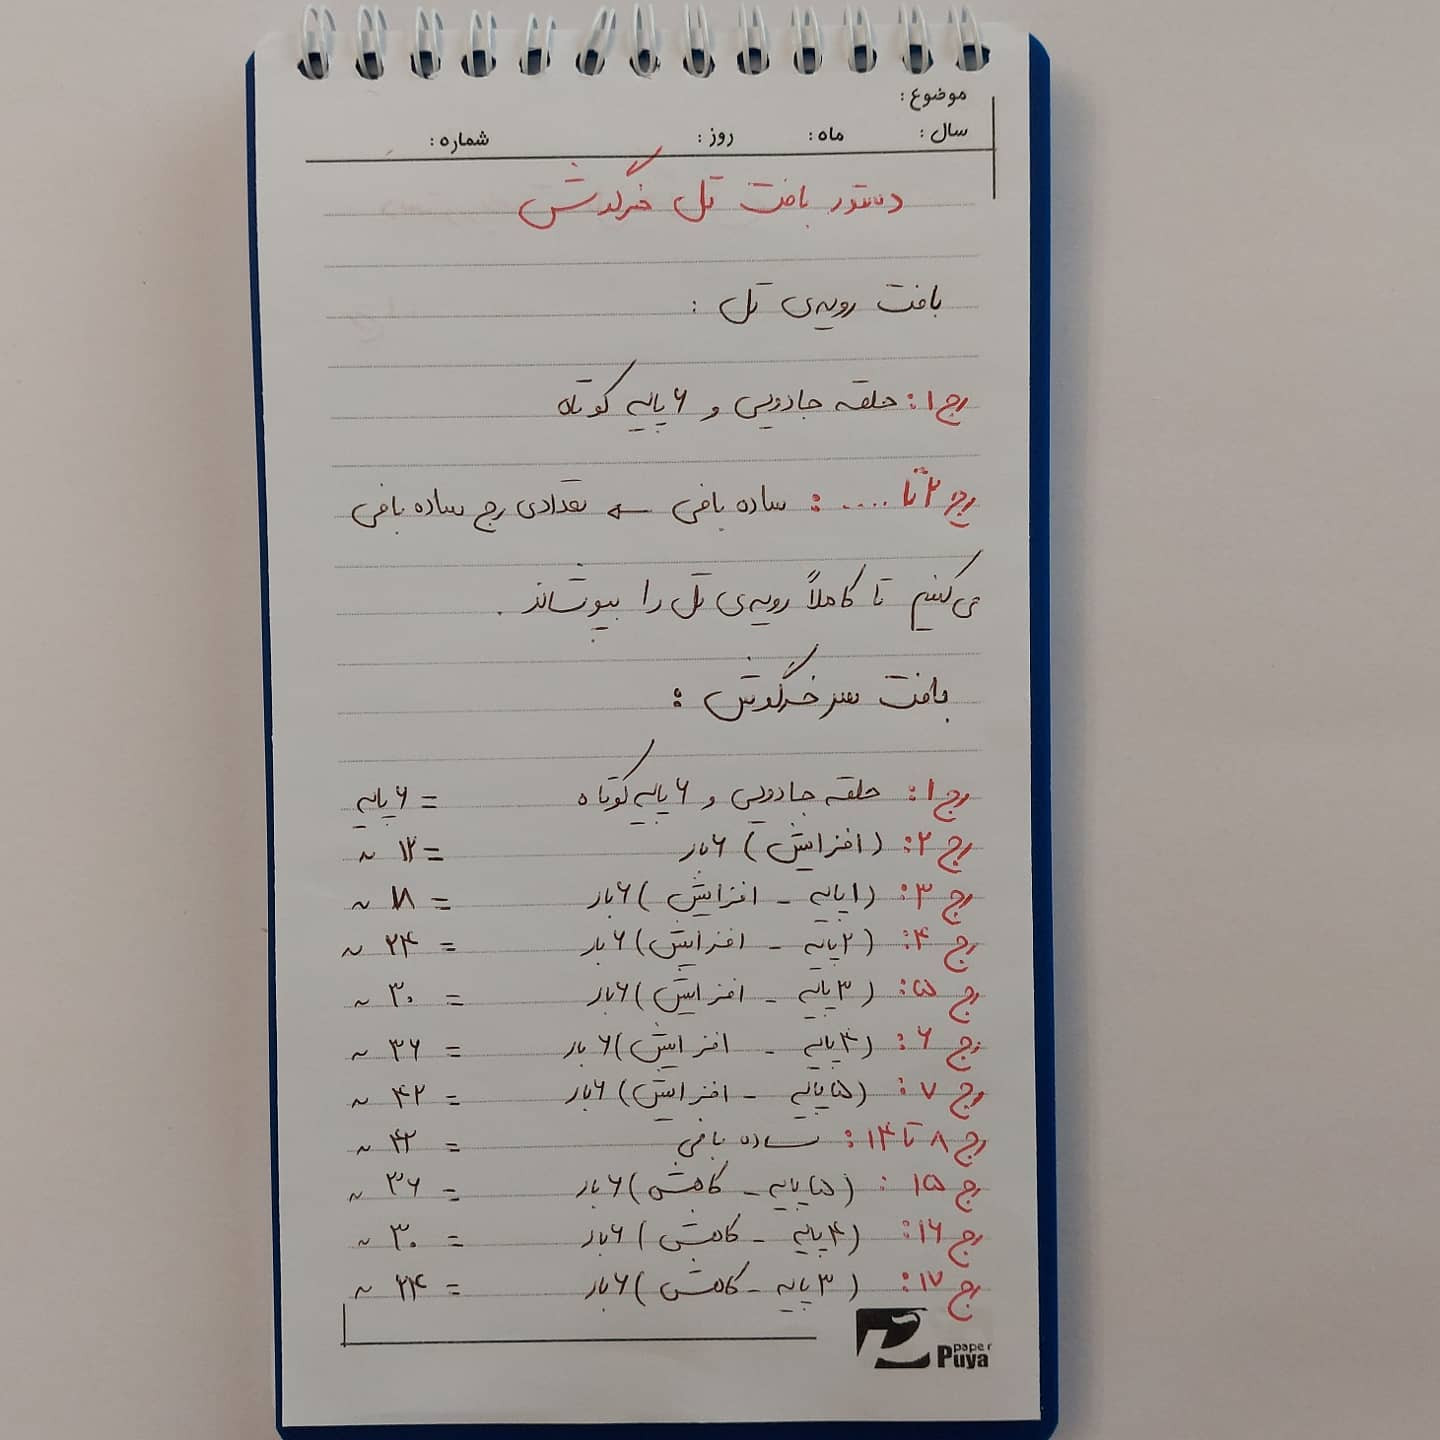 موضوع:
سال: ماه: روز: شماره:
دستور بافت تل خرگوش
بافت رویه‌ی تل :
رج ۱: حلقه جادویی و ۶ پایه کوتاه
رج ۲ تا ....: ساده بافی ← تعدادی رج ساده بافی
می‌کنیم تا کاملاً رویه‌ی تل را بپوشاند .
بافت سر خرگوش :
رج ۱: حلقه جادویی و ۶ پایه کوتاه = ۶ پایه
رج ۲: (افزایش) ۶ بار = ۱۲ ~
رج ۳: (۱ پایه - افزایش) ۶ بار = ۱۸ ~
رج ۴: (۲ پایه - افزایش) ۶ بار = ۲۴ ~
رج ۵: (۳ پایه - افزایش) ۶ بار = ۳۰ ~
رج ۶: (۴ پایه - افزایش) ۶ بار = ۳۶ ~
رج ۷: (۵ پایه - افزایش) ۶ بار = ۴۲ ~
رج ۸ تا ۱۴: ساده بافی = ۴۲ ~
رج ۱۵: (۵ پایه - کاهش) ۶ بار = ۳۶ ~
رج ۱۶: (۴ پایه - کاهش) ۶ بار = ۳۰ ~
رج ۱۷: (۳ پایه - کاهش) ۶ بار = ۲۴ ~
paper
Puya